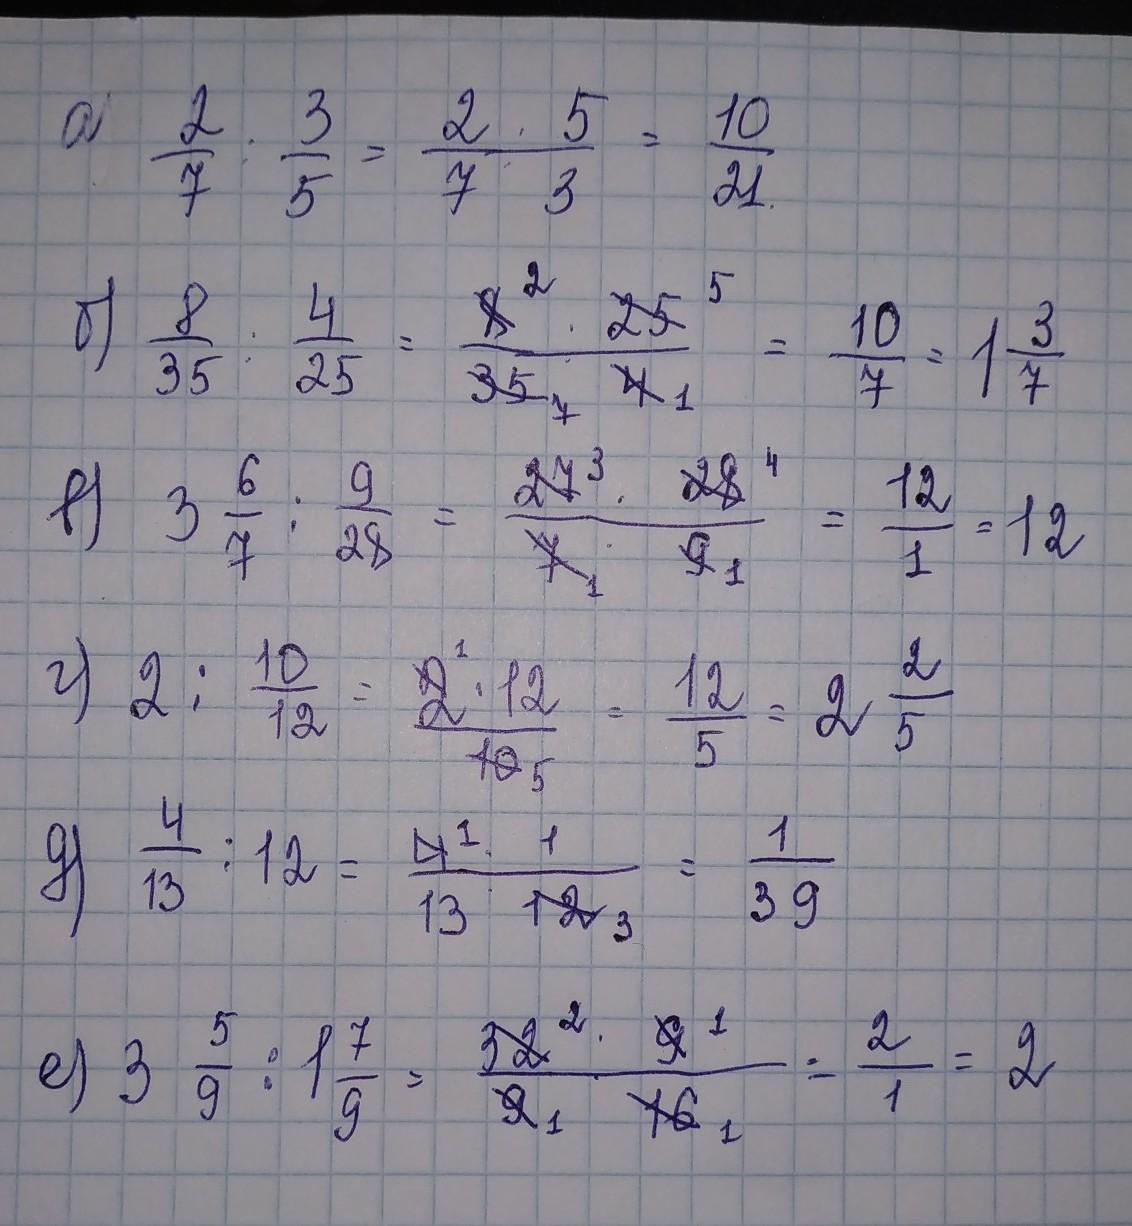 а) 2/7 : 3/5 = 2 · 5 / 7 · 3 = 10/21
б) 8/35 : 4/25 = 8 2 · 25 5 / 35 7 · 4 1 = 10/7 = 1 3/7
в) 3 6/7 : 9/28 = 27 3 · 28 4 / 7 1 · 9 1 = 12/1 = 12
г) 2 : 10/12 = 2 1 · 12 / 10 5 = 12/5 = 2 2/5
д) 4/13 : 12 = 4 1 · 1 / 13 · 12 3 = 1/39
е) 3 5/9 : 1 7/9 = 32 2 · 9 1 / 9 1 · 16 1 = 2/1 = 2